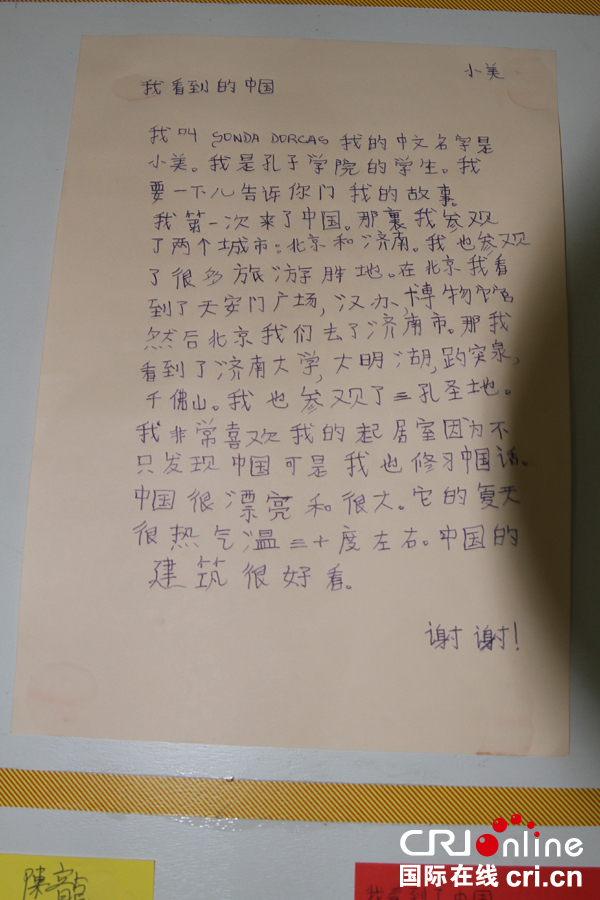 小美
我看到的中国
我叫 SONDA DORCAS 我的中文名字是
小美。我是孔子学院的学生。我
要一下儿告诉你门我的故事。
我第一次来了中国。那裏我参观
了两个城市：北京和济南。我也参观
了很多旅游字胜地。在北京我看
到了天安门广场，汉办，博物馆
然后北京我们去了济南市。那我
看到了济南大学，大明湖，趵突泉，
千佛山。我也参观了三孔圣地。
我非常喜欢我的起居室因为不
只发现中国可是我也修习中国话。
中国很漂亮和很大。它的夏天
很热气温三十度左右。中国的
建筑很好看。
谢谢！
CRI online
国际在线 cri.cn
陳龍
我看到了中国